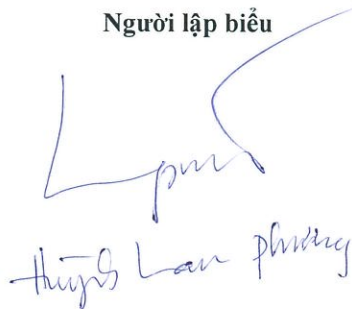 Người lập biểu
Huỳnh Lan Phương